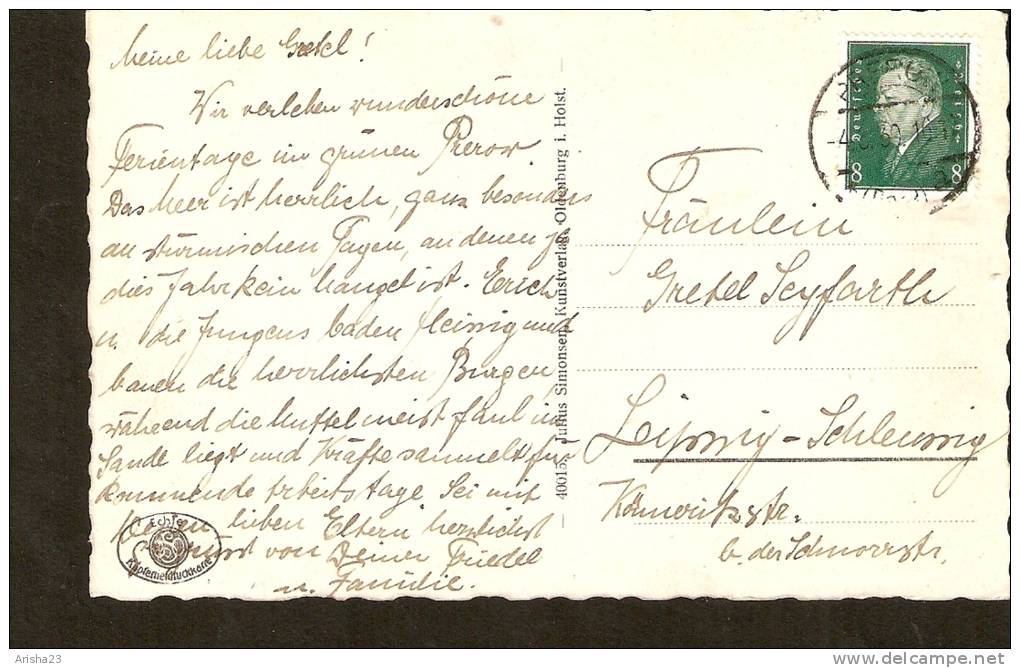 Meine liebe Gretel!
Wir verleben wunderschöne
Ferientage im grünen Prerow.
Das Meer ist herrlich, ganz besonders
an stürmischen Tagen, an denen ja
dies Jahr kein Mangel ist. Erich
u. die Jungens baden fleissig und
bauen die herrlichsten Burgen,
während die Muttel meist faul im
Sande liegt und Kräfte sammelt für
kommende Arbeitstage. Sei mit
Deinen lieben Eltern herzlichst
gegrüsst von Deiner Friedel
u. Familie.
Echte
Kupfertiefdruckkarte
40015 Julius Simonsen, Kunstverlag, Oldenburg i. Holst.
Deutsches Reich
8 8
Fräulein
Gretel Seyfarth
Leipzig-Schleussig
Könneritzstr.
b. der Schnorrstr.
Arisha23
delcampe.net